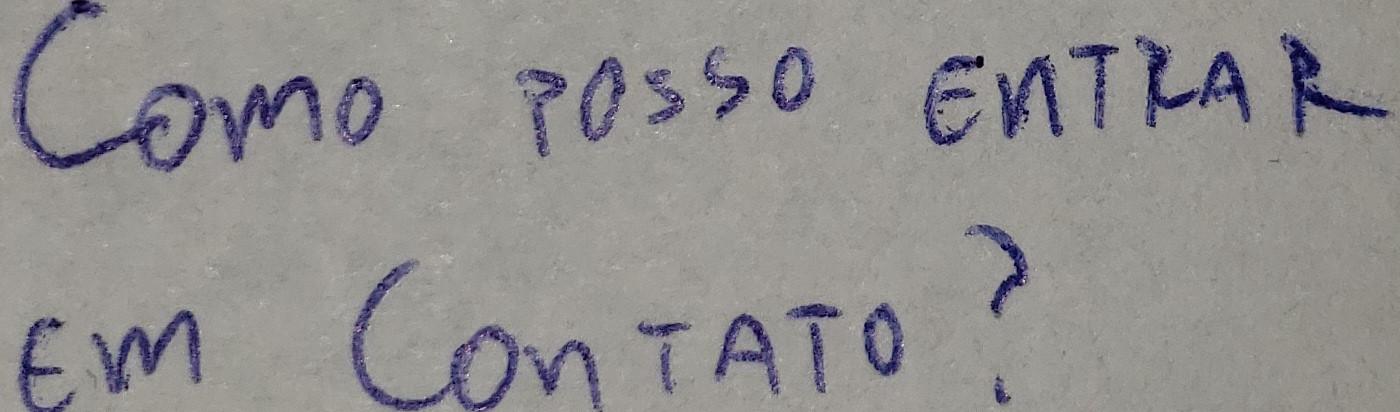 COMO POSSO ENTRAR
EM CONTATO?